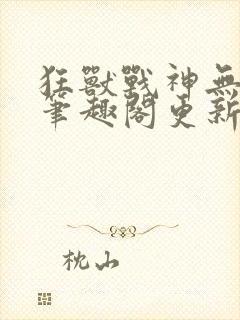 狂獸戰神無
筆趣閣更新
枕山